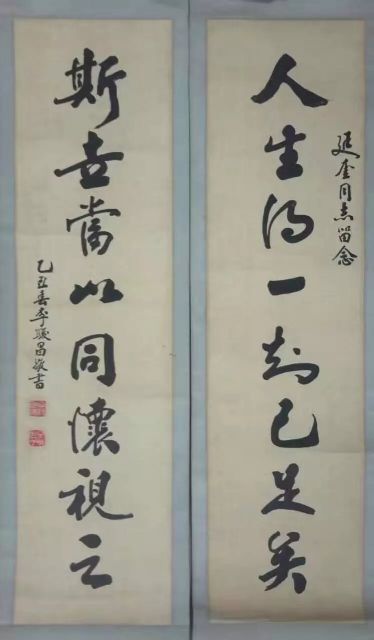 人生得一知己足矣
延奎同志留念
斯世當以同懷視之
乙丑春李昌敬書